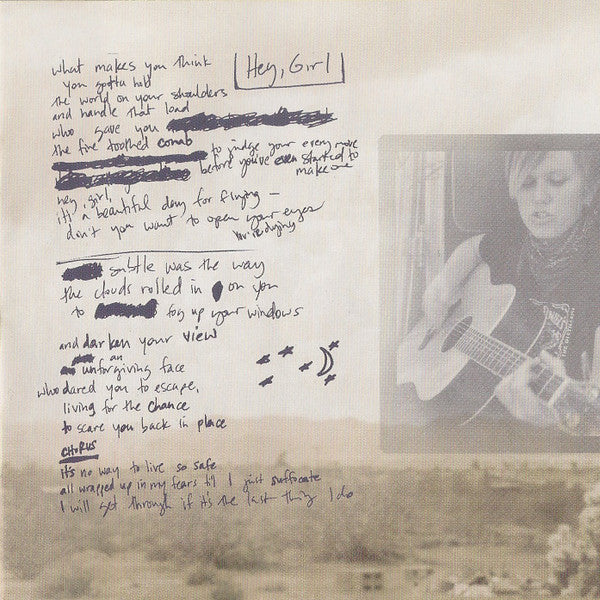 Hey, Girl
what makes you think
you gotta hold
the world on your shoulders
and handle that load
who gave you
the fine toothed comb
to judge your every move
before you've even started to
make one
hey, girl,
it's a beautiful day for flying —
don't you want to open your eyes
You're dying
subtle was the way
the clouds rolled in on you
to fog up your windows
and darken your view
an
unforgiving face
who dared you to escape,
living for the chance
to scare you back in place
CHORUS
it's no way to live so safe
all wrapped up in my fears til I just suffocate
I will get through if it's the last thing I do